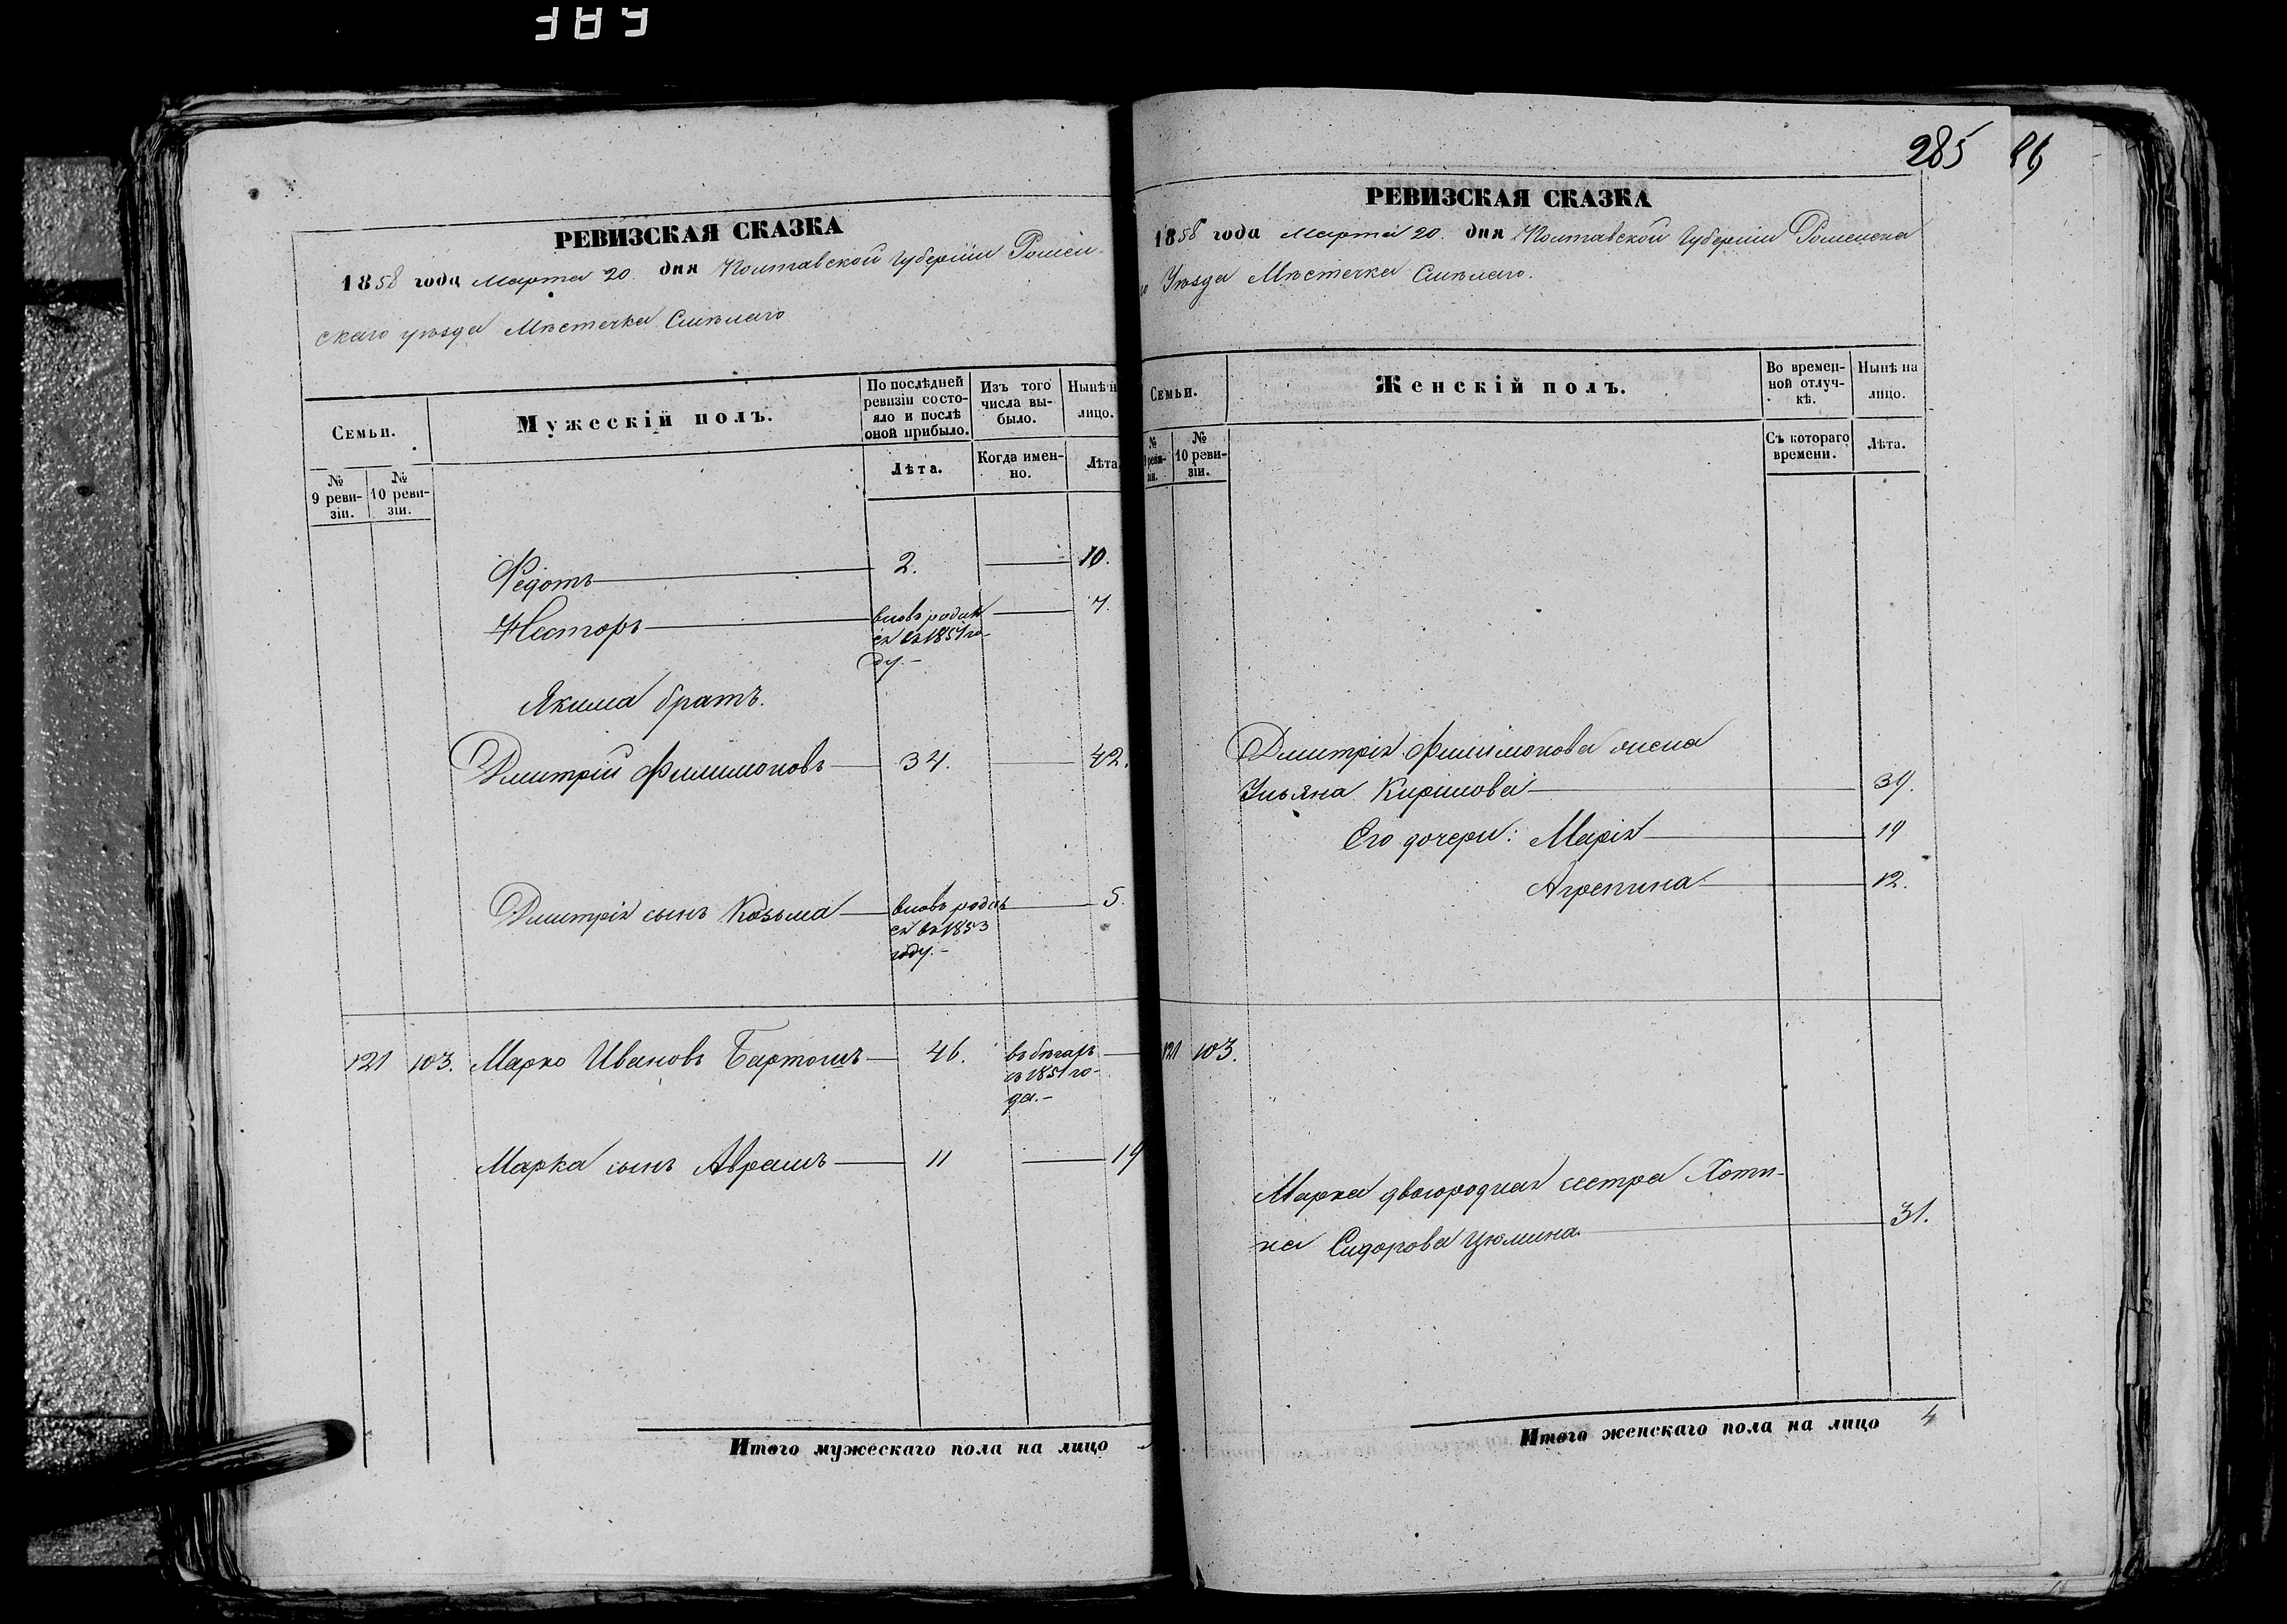 285 86
РЕВИЗСКАЯ СКАЗКА
1858 года Марта 20. дня Полтавской Губерніи Ромен-
скаго уѣзда Мѣстечка Смѣлаго
Семьи.
Мужескій полъ.
По послѣдней ревизіи состо-яло и послѣ оной прибыло.
Изъ того числа вы-было.
Нынѣ н
лицо.
№ 9 реви-зіи.
№ 10 реви-зіи.
Лѣта.
Когда имен-но.
Лѣта
Федотъ 2. 10.
Несторъ вновь родил 7.
ся въ 1851 го-
ду.-
Якима братъ.
Дмитрій Филимоновъ 34. 42.
Дмитрія сынъ Козьма вновь родил 5.
ся въ 1853
году.-
121 103. Марко Ивановъ Бартошъ 46. въ бѣгахъ
съ 1851 го-
да.-
Марка сынъ Аврамъ 11 19
Итого мужескаго пола на лицо
РЕВИЗСКАЯ СКАЗКА
1858 года Марта 20. дня Полтавской Губерніи Роменска
го Уѣзда Мѣстечка Смѣлаго.
Семьи.
Женскій полъ.
Во времен-ной отлуч-кѣ.
Нынѣ на лицо.
№ 9 реви-зіи.
№ 10 реви-зіи.
Съ котораго времени.
Лѣта.
Дмитрія Филимонова жена
Ульяна Кирилова 39.
Его дочери: Марія 19
Агрепина 12.
121 103.
Марка двоюродная сестра Хоти-
на Сидорова Цюмина 31.
Итого женскаго пола на лицо 4